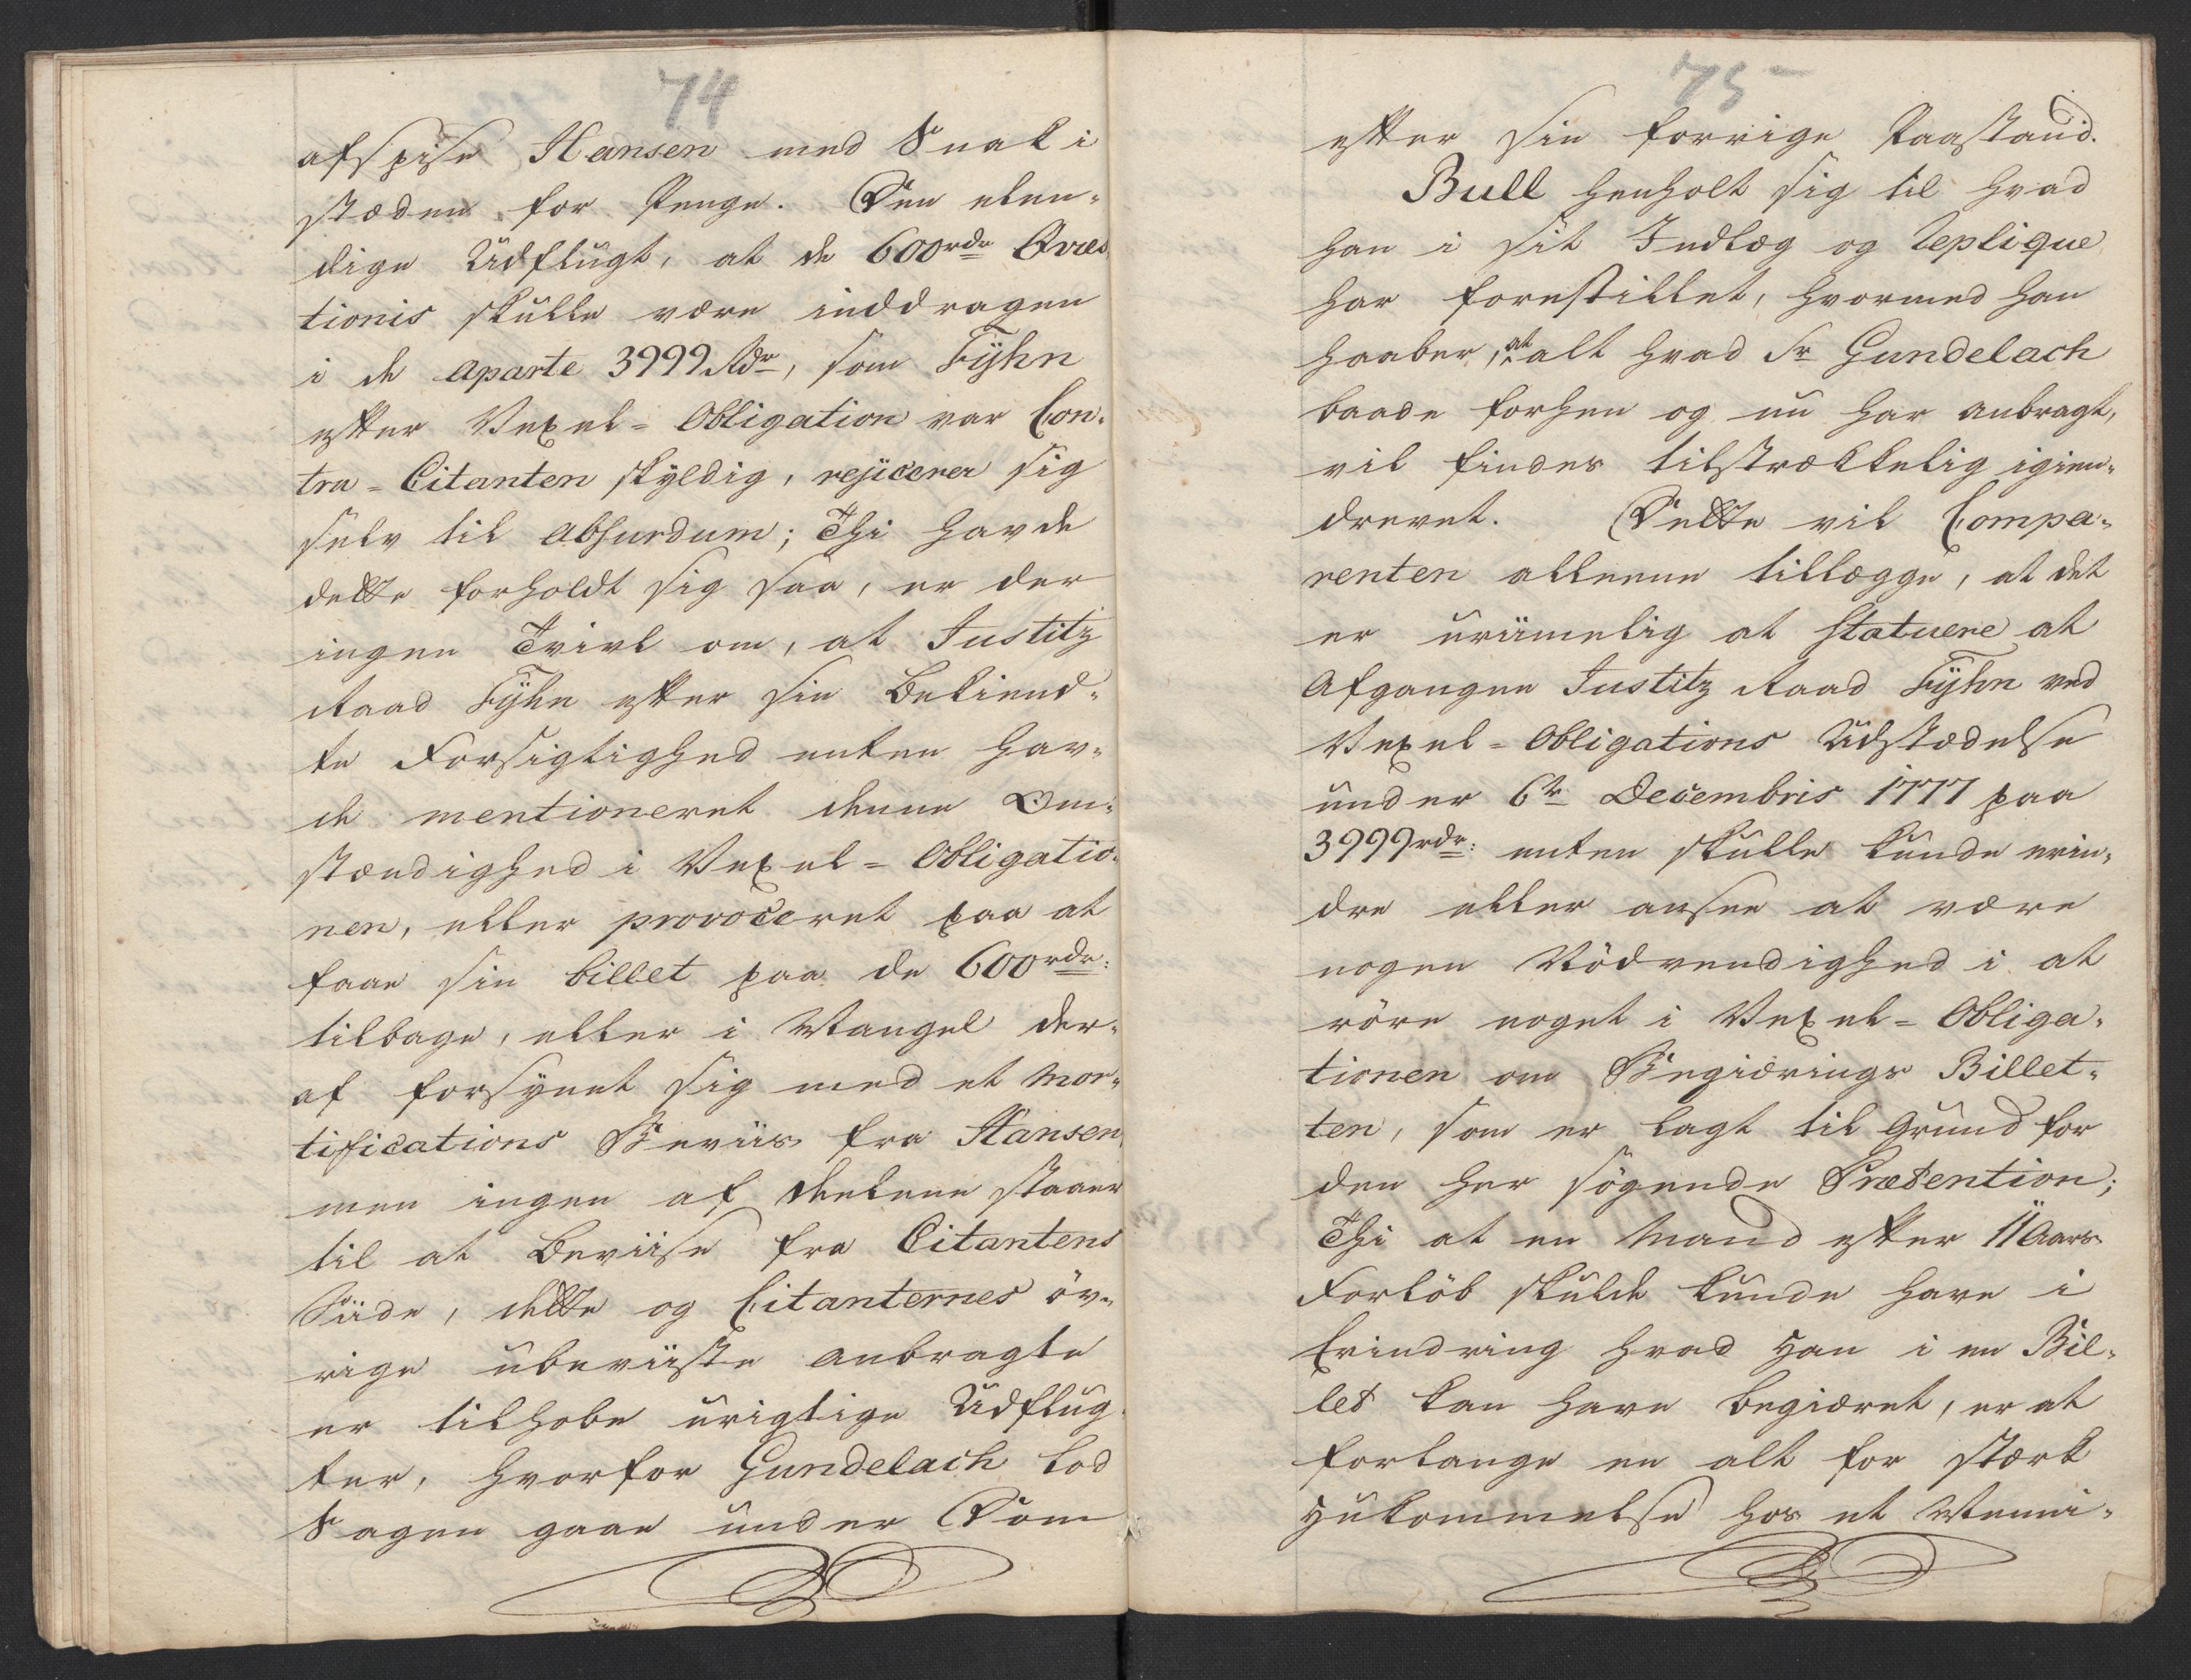 74
afspise Hansen med Snak i
stæden for Penge. Den elen-
dige Udflugt, at de 600rdr Qvæs-
tionis skulle være inddragen
i de aparte 3999 Rdr, som Fÿhn
efter Vexel-Obligation var Con-
tra-Citanten skyldig, rejicerer sig
selv til absurdum; Thi havde
dette forholdt sig saa, er der
ingen Tvivl om, at Justitz
Raad Fÿhn efter sin bekiend-
te Forsigtighed enten hav-
de mentioneret denne Om-
stændighed i Vexel-Obligatio-
nen, eller provoceret paa at
faae sin billet paa de 600rdr:
tilbage, eller i Mangel der-
af forsÿnet sig med et Mor-
tifications Beviis fra Hansen,
men ingen af delene staaer
til at beviise fra Citantens
Siide, dette og Citanternes öv-
rige ubeviiste anbragte
er tilhobe urigtige Udflug-
ter, hvorfor Gundelach lod
Sagen gaae under Dom
75
efter sin forrige Paastand.
Bull henholt sig til hvad
han i sit Indlæg og Replique
har forestillet, hvormed han
haaber, at alt hvad Sr Gundelach
baade forhen og nu har anbragt,
vil findes tilstrækkelig igien-
drevet. Dette vil Compa-
renten alleene tillægge, at det
er uriimelig at statuere at
Afgangne Justitz Raad Fÿhn ved
Vexel-Obligations Udstædelse
under 6te Decembris 1777 paa
3999rdr: enten skulle kunde erin-
dre eller ansee at være
nogen Nödvendighed i at
röre noget i Vexel-Obliga-
tionen om Begiærings Billet-
ten, som er lagt til Grund for
den her sögende Prætention;
Thi at en Mand efter 11 Aars
Forlöb skulde kunde have i
Erindring hvad han i en Bil-
let kan have begiæret, er at
forlange en alt for stærk
Hukommelse hos et Menni-